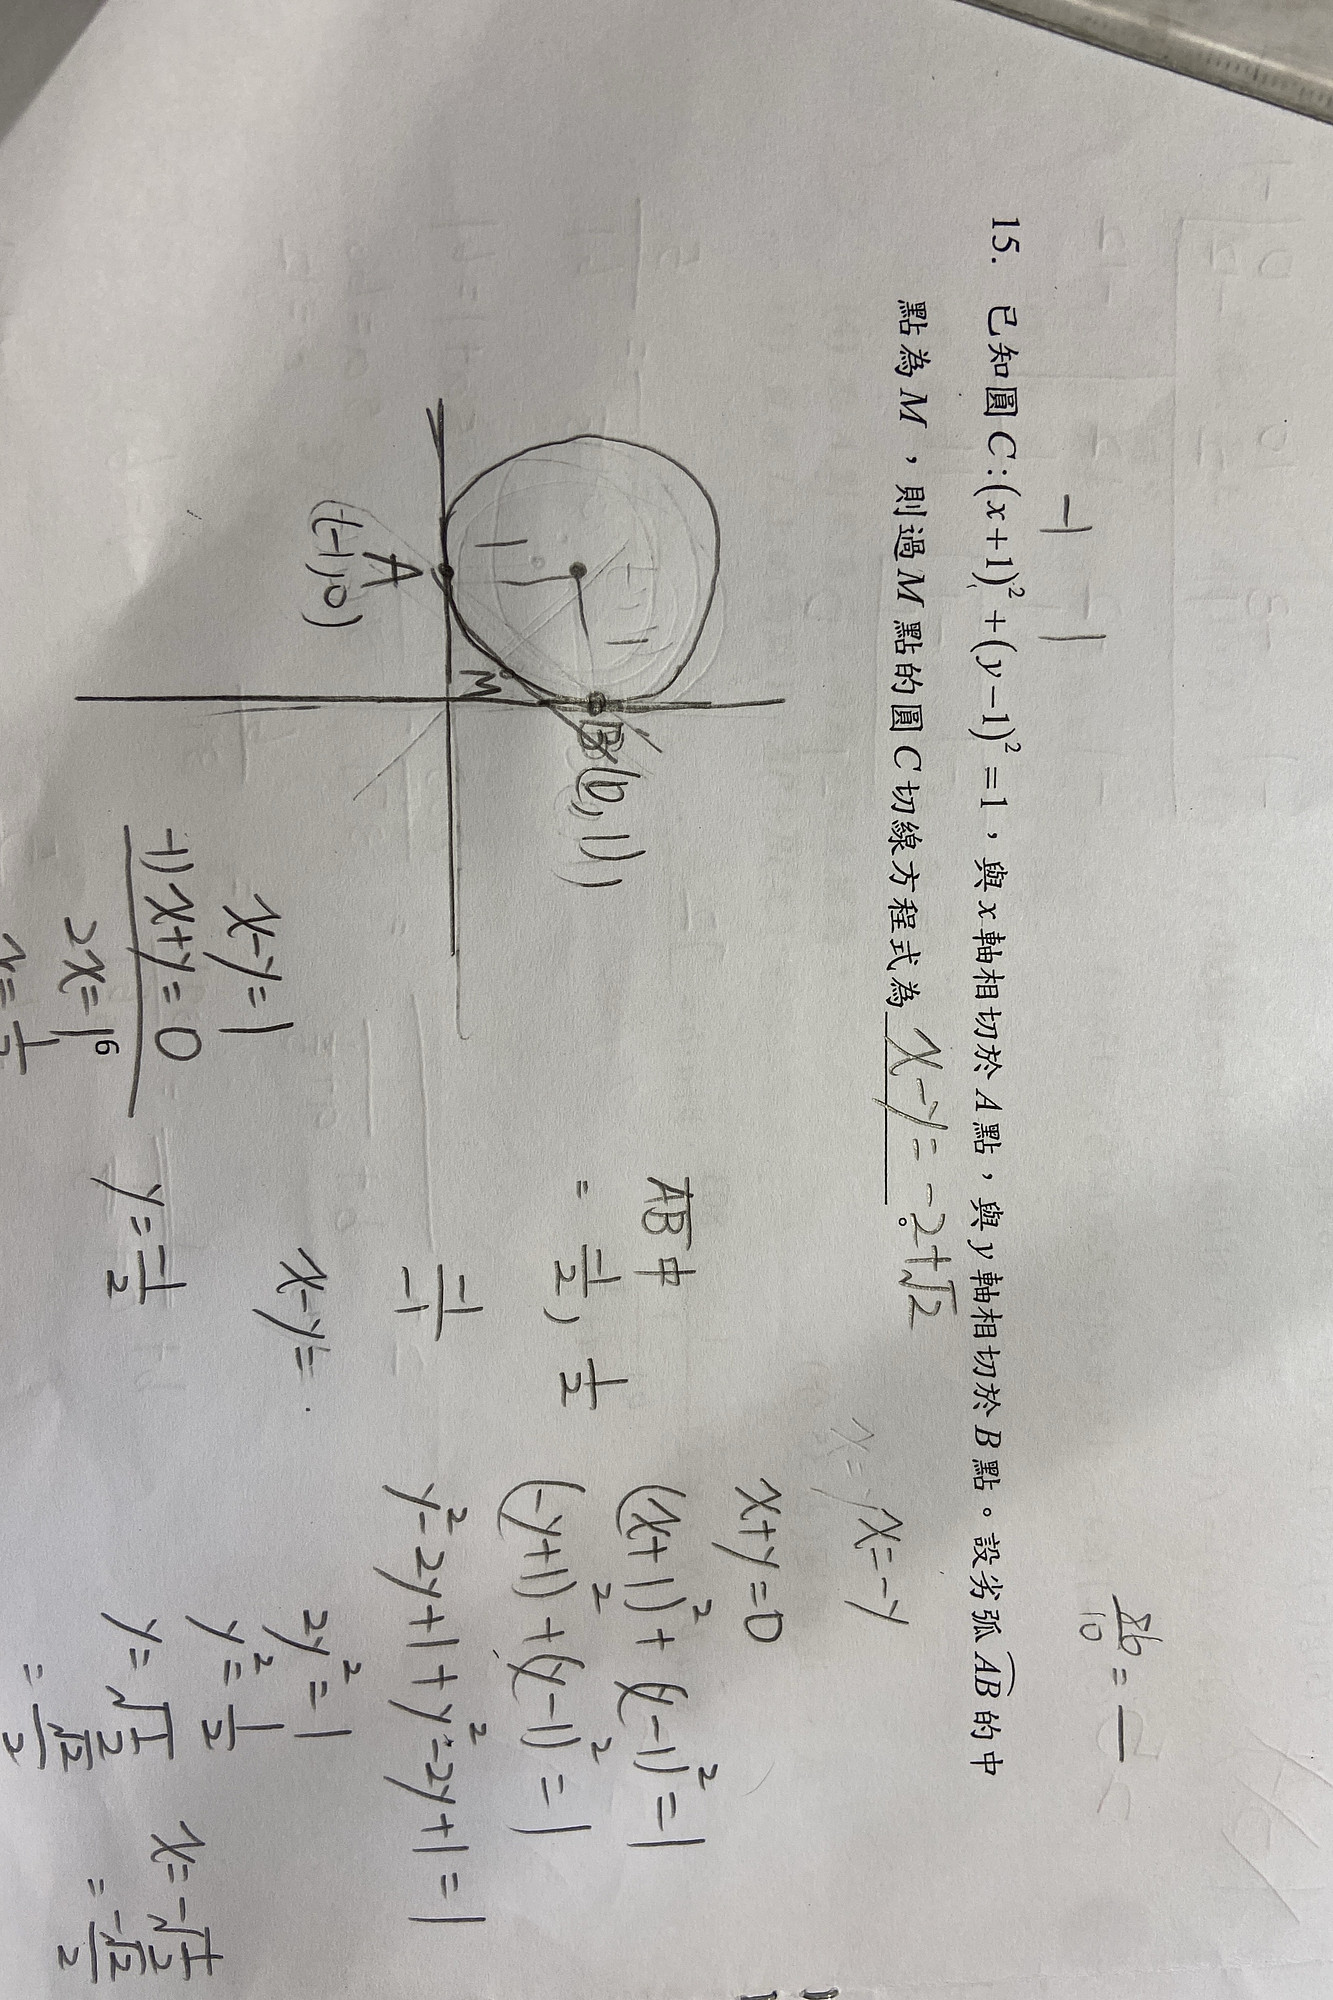 -1 1
15. 已知圓C:(x+1)²+(y-1)²=1，與x軸相切於A點，與y軸相切於B點。設劣弧AB的中
點為M，則過M點的圓C切線方程式為x-y=-2+√2。
1
1
M
B(0,1)
A
(-1,0)
x-y=1
+) x+y=0
2x=1
6
y=-1/2
AB中
=-1/2, 1/2
-1/-1
x-y=
x=-y
x+y=0
(x+1)²+(y-1)²=1
(-y+1)²+(y-1)²=1
y²-2y+1+y²-2y+1=1
2y²=1
y²=1/2
y=√1/2
=√2/2
x=-√1/2
=-√2/2